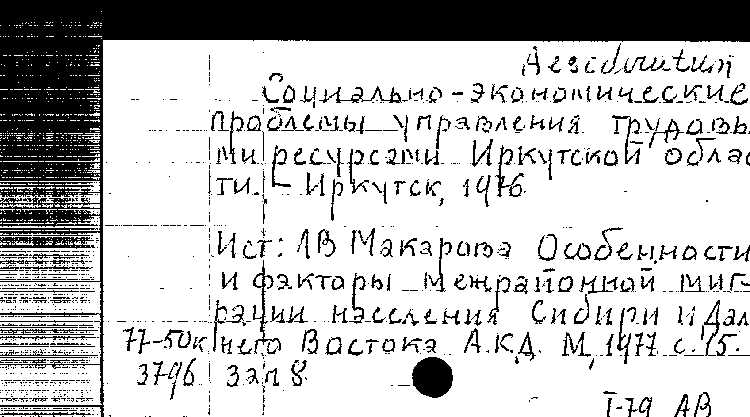 Aesedivutum
Социально-экономические
проблемы управления трудовы
ми ресурсами Иркутской облас
ти. - Иркутск, 1976
Ист: ЛВ Макарова Особенности
и факторы межрайонной миг-
рации населения Сибири и Дал
77-50к него Востока А.К.Д. М, 1977 с. 15.
3796 Зал 8
I-79 АВ